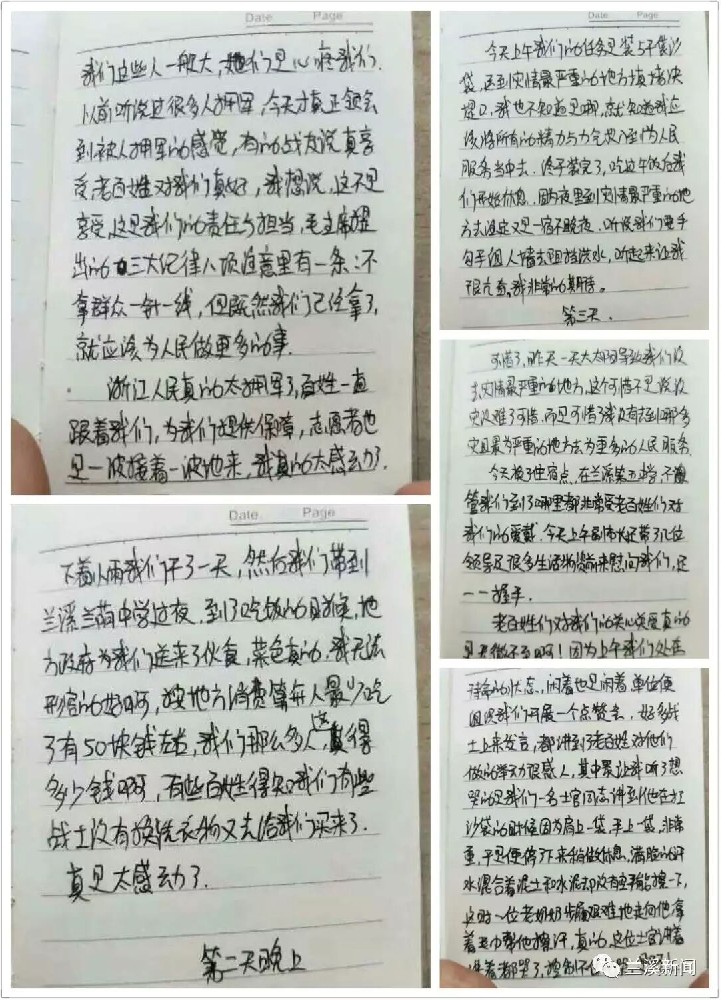 Date Page
我们这些人一般大,她们是心疼我们.
以前听说过很多人拥军,今天才真正领会
到被人拥军的感觉,有的战友说真享
受老百姓对我们真好,我想说,这不是
享受,这是我们的责任与担当,毛主席提
出的三大纪律八项注意里有一条:不
拿群众一针一线,但既然我们已经拿了,
就应该为人民做更多的事.
浙江人民真的太拥军了,百姓一直
跟着我们,为我们提供保障,志愿者也
是一波接着一波地来,我真的太感动了.
Date Page
下着小雨我们干了一天,然后我们带到
兰溪兰荫中学过夜,到了吃饭的时候,地
方政府为我们送来了伙食,菜色真的,我无法
形容的好啊,按地方消费算每人最少吃
了有50块钱左右,我们那么多人,这得
多少钱啊,有些百姓得知我们有些
战士没有换洗衣物又去给我们买来了.
真是太感动了.
第二天晚上
Date Page
今天上午我们的任务是装5千袋沙
袋,送到灾情最严重的地方填堵决
堤口,我也不知道是哪,就知道我应
该将所有的精力与力气投入到为人民
服务当中去.终于装完了,吃过午饭后我
们开始休息.因为夜里到灾情最严重的地
方去注定又是一宿不眠夜.听说我们要手
勾手组人墙去阻挡洪水,听起来让我
很亢奋,我非常的期待。
第三天.
可惜了,昨天一天大太阳导致我们没
去灾情最严重的地方,这个可惜不是说没
灾没难了可惜.而是可惜我没有去到哪多
灾且最为严重的地方去为更多的人民服务.
今天换了住宿点,在兰溪第五中学,不
管我们到了哪里都非常受老百姓们对
我们的爱戴.今天上午副市长还带了几位
领导及很多生活物资前来慰问我们,还
一一握手.
老百姓们对我们的关心关爱真的
是无微不至啊!因为上午我们处在
待命的状态,闲着也是闲着单位便
组织我们开展一个点赞会,好多战
士上来发言,都讲到了老百姓对他们
做的举动很感人,其中最让我听了想
哭的是我们一名士官同志讲到他在扛
沙袋的时候因为肩上一袋,手上一袋,非常
重,于是便停下来稍做休息,满脸的汗
水混合着泥土和水泥却没有手能擦一下,
这时一位老奶奶步履艰难地走向他拿
着毛巾帮他擦汗,真的,这位士官讲着
讲着都哭了,控制不住
兰溪新闻